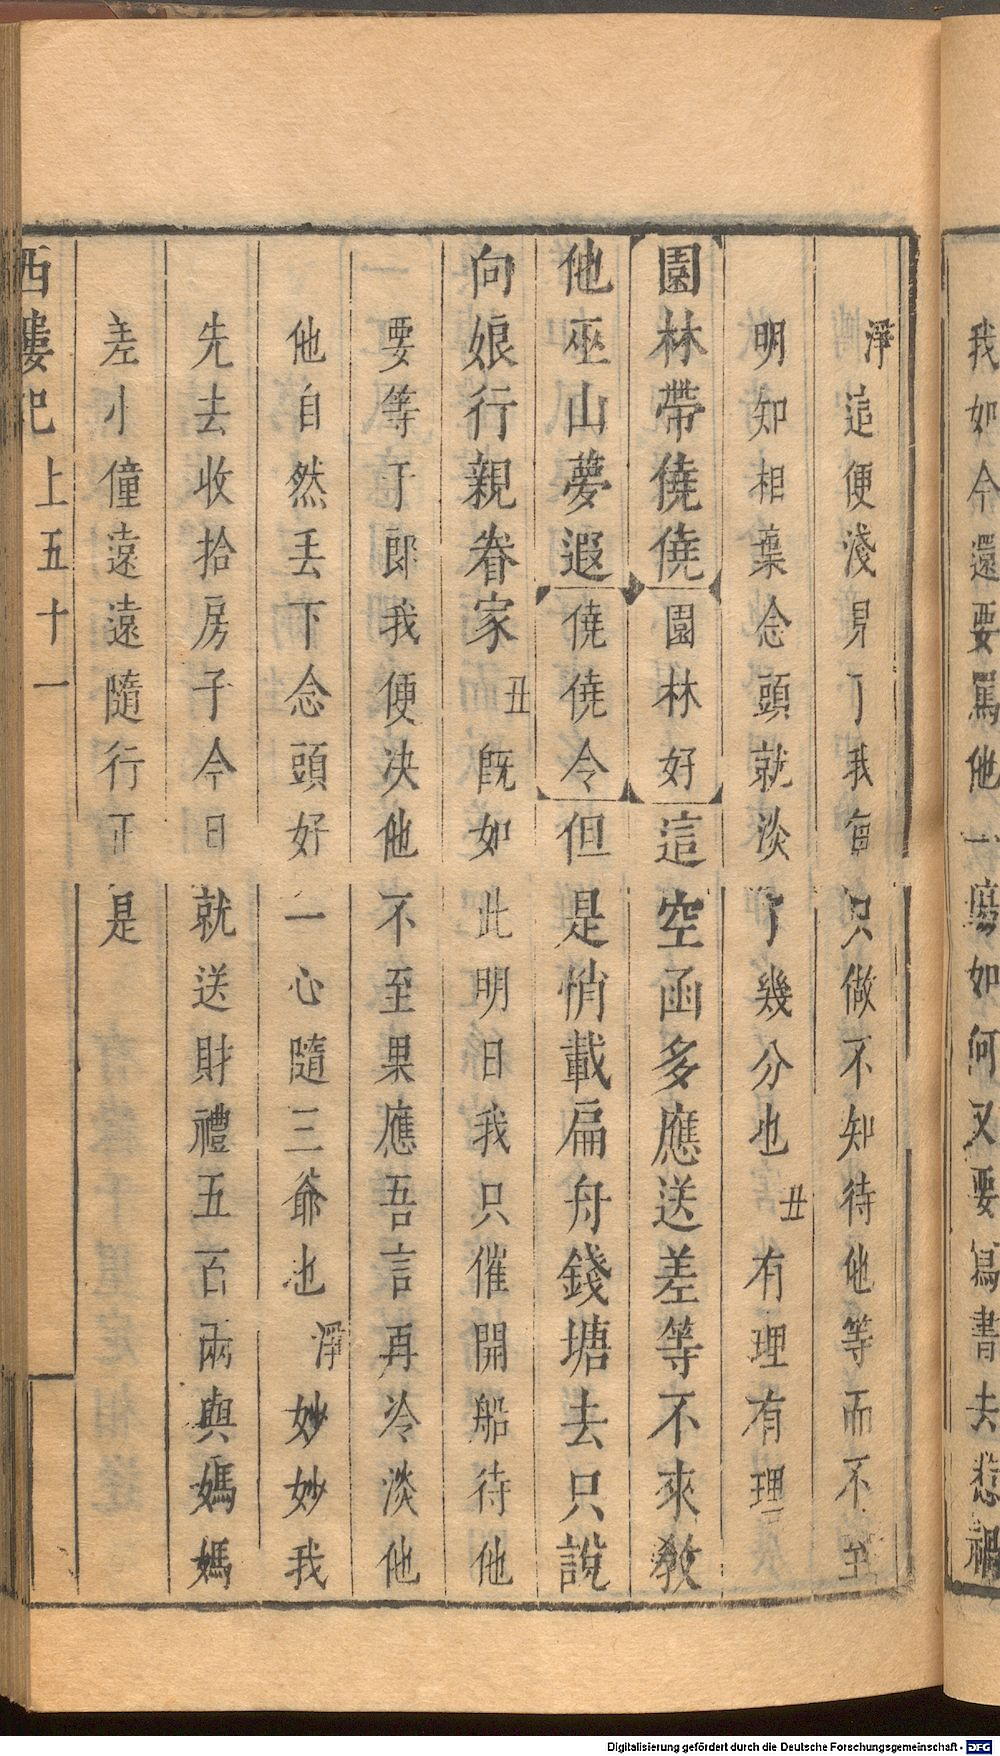 我如今還要罵他一塲如何又要寫書去惹禍
淨
這便淺見了我每只做不知待他等而不至
明知相棄念頭就淡了幾分也丑有理有理
園林帶僥僥園林好這空函多應送差等不來教
他巫山夢遐僥僥令但是悄載扁舟錢塘去只說
向娘行親眷家丑旣如此明日我只催開船待他
要等于郎我便決他不至果應吾言再冷淡他
他自然丟下念頭好一心隨三爺也淨妙妙我
先去收拾房子今日就送財禮五百兩與媽媽
差小僮遠遠隨行正是
西樓記
上五十一
Digitalisierung gefördert durch die Deutsche Forschungsgemeinschaft - DFG